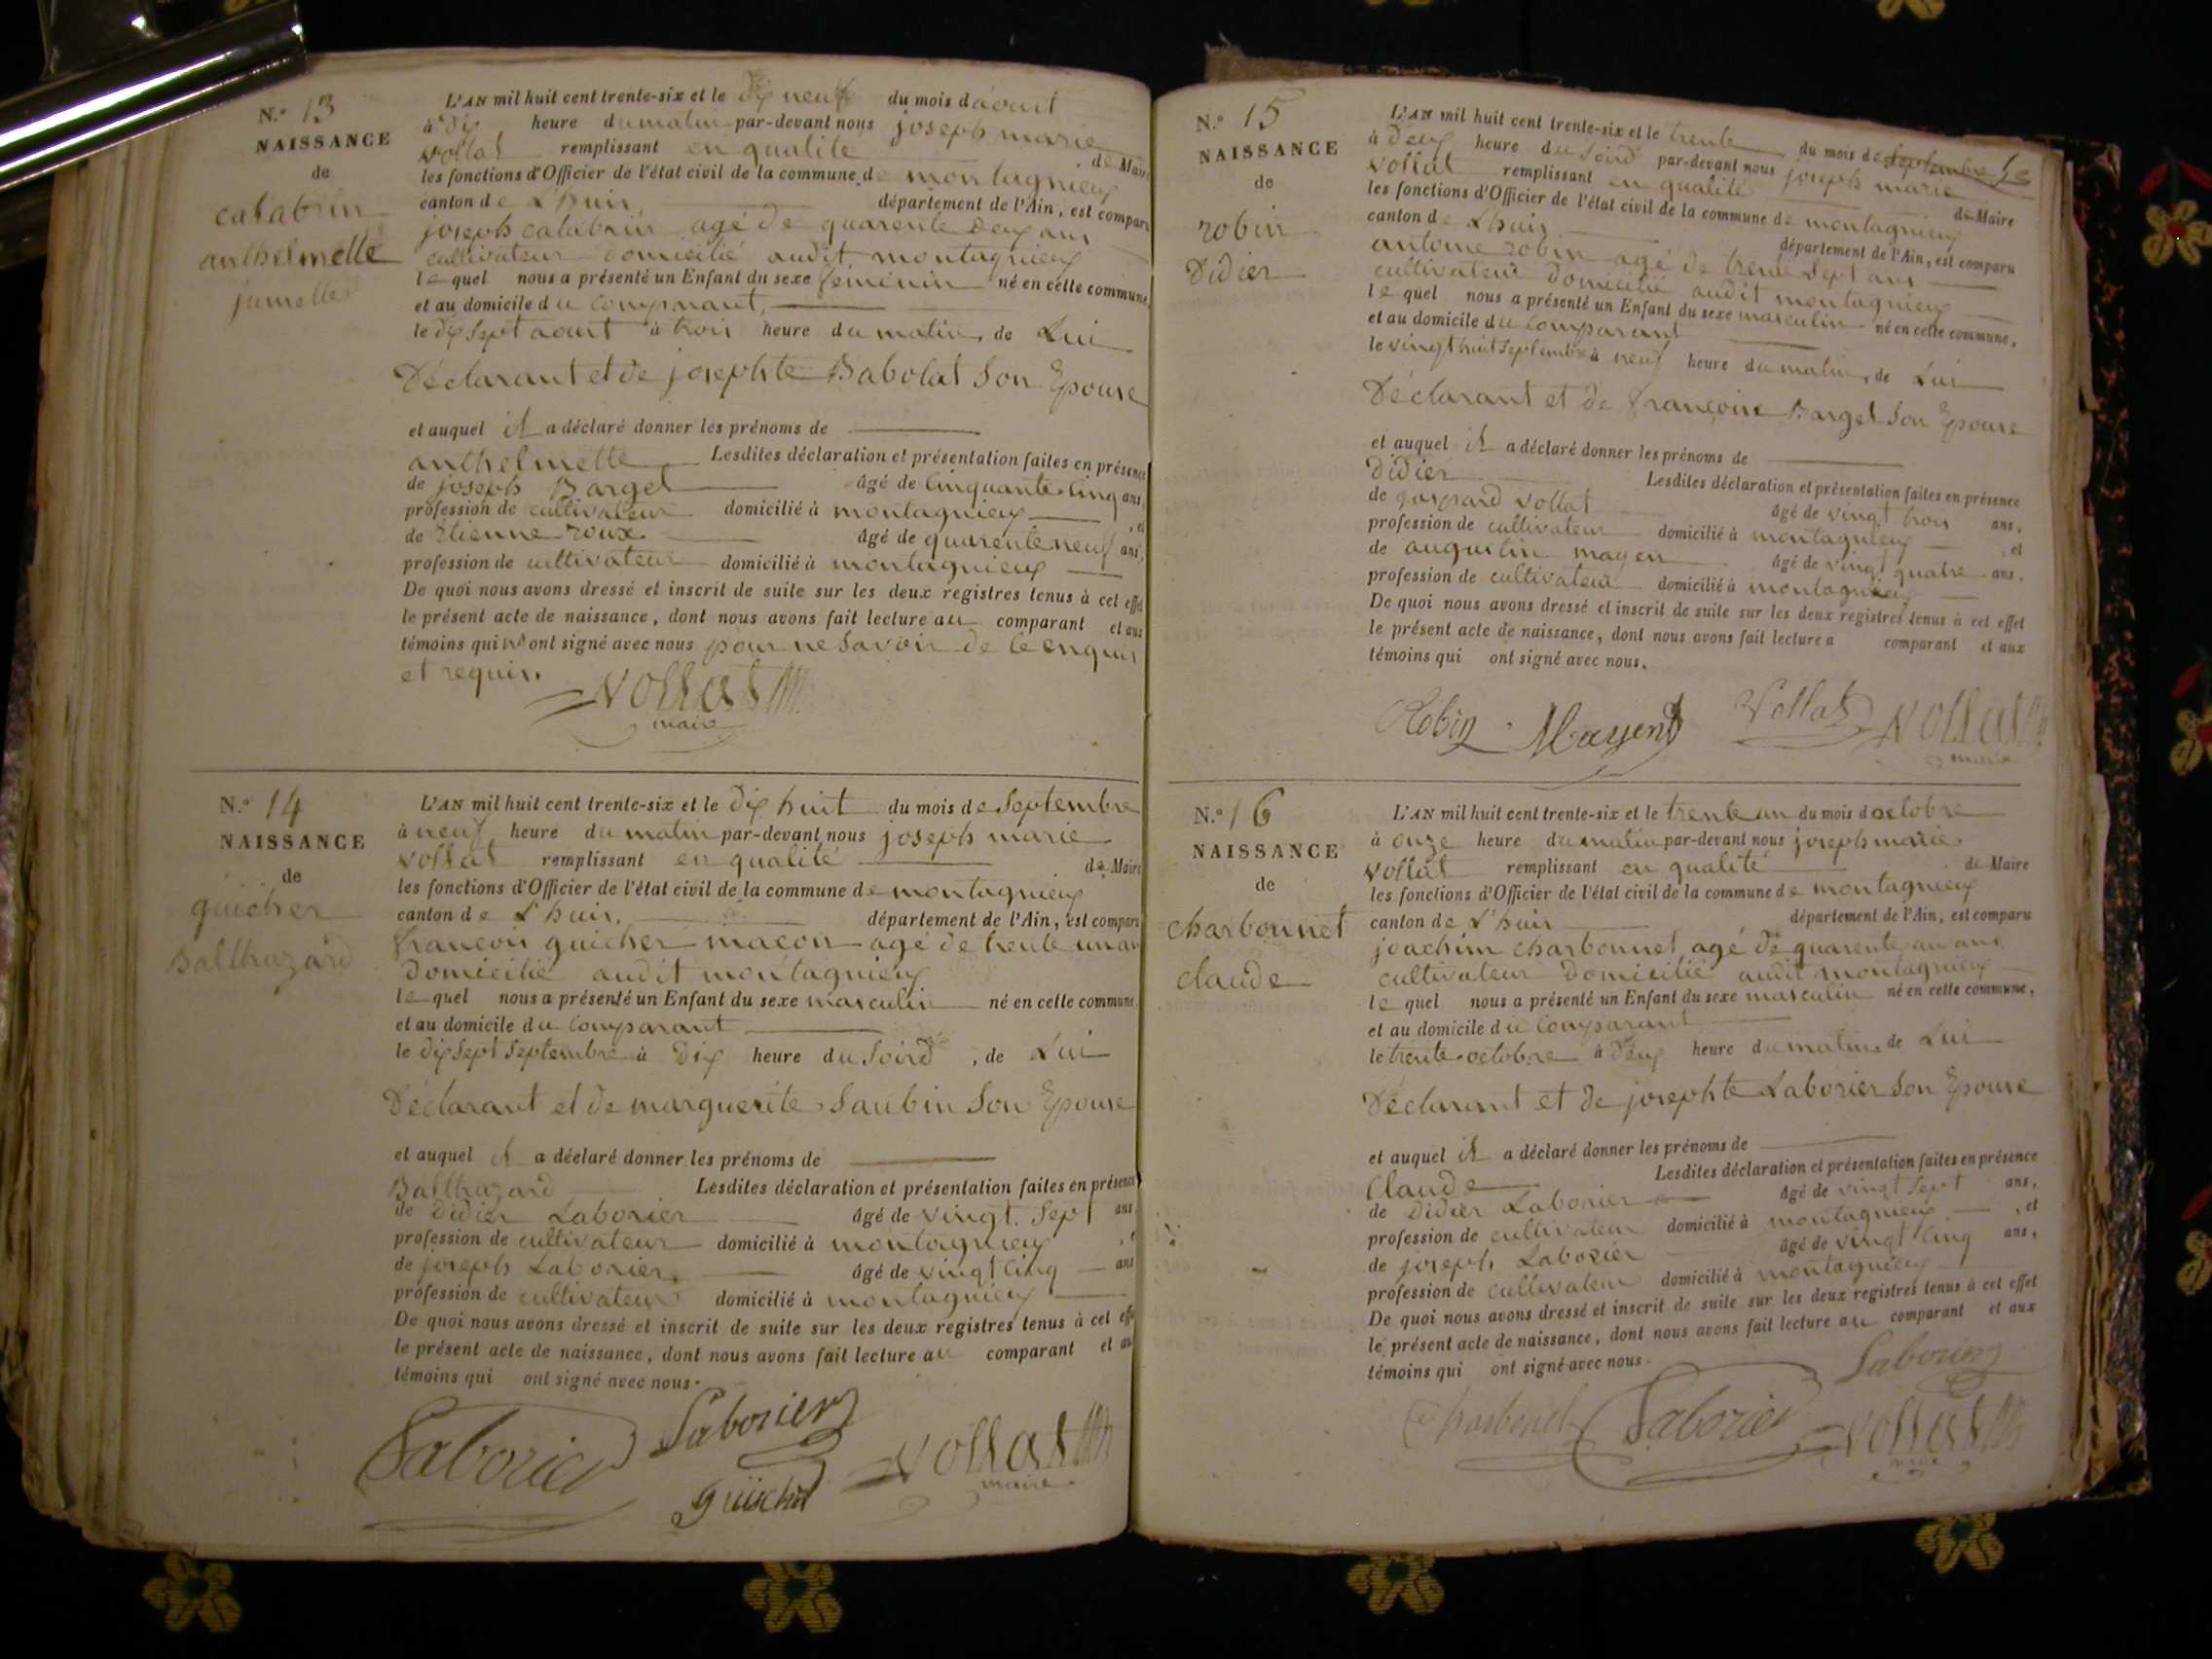 N.° 13
NAISSANCE
de
catabrin
anthelmette
jumelle
L'AN mil huit cent trente-six et le dix neuf du mois d'aout
à dix heure du matin par-devant nous joseph marie
vollat remplissant en qualité de Maire
les fonctions d'Officier de l'état civil de la commune de montagnieux
canton de L'huis département de l'Ain, est comparu
joseph catabrin agé de quarente deux ans
cultivateur domicilié audit montagnieux
le quel nous a présenté un Enfant du sexe féminin né en cette commune,
et au domicile du comparant,
le dix sept aout à trois heure du matin, de Lui
Déclarant et de josephte Babolat Son Epouse
et auquel il a déclaré donner les prénoms de
anthelmette Lesdites déclaration et présentation faites en présence
de joseph Barget âgé de cinquante cinq ans,
profession de cultivateur domicilié à montagnieux , et
de Etienne roux âgé de quarente neuf ans,
profession de cultivateur domicilié à montagnieux
De quoi nous avons dressé et inscrit de suite sur les deux registres tenus à cet effet
le présent acte de naissance, dont nous avons fait lecture au comparant et aux
témoins qui n'ont signé avec nous pour ne Savoir de ce enquis
et requis.
vollat
maire
N.° 14
NAISSANCE
de
guicher
Balthazard
L'AN mil huit cent trente-six et le dix huit du mois de Septembre
à neuf heure du matin par-devant nous joseph marie
vollat remplissant en qualité de Maire
les fonctions d'Officier de l'état civil de la commune de montagnieux
canton de L'huis. département de l'Ain, est comparu
francois guicher macon agé de trente un an
domicilié audit montagnieux
le quel nous a présenté un Enfant du sexe masculin né en cette commune,
et au domicile du comparant
le dix Sept Septembre à Dix heure du Soird , de Lui
Déclarant et de marguerite Saubin Son Epouse
et auquel il a déclaré donner les prénoms de
Balthazard Lesdites déclaration et présentation faites en présence
de Didier Laborier âgé de vingt Sept ans
profession de cultivateur domicilié à montagnieux , et
de joseph Laborier, âgé de vingt cinq ans
profession de cultivateur domicilié à montagnieux
De quoi nous avons dressé et inscrit de suite sur les deux registres tenus à cet effet
le présent acte de naissance, dont nous avons fait lecture au comparant et aux
témoins qui ont signé avec nous.
Laborier
Laborier
guicher
vollat
maire
N.° 15
NAISSANCE
de
robin
Didier
L'AN mil huit cent trente-six et le trente du mois de Septembre
à deux heure du Soird par-devant nous joseph marie
vollat remplissant en qualité de Maire
les fonctions d'Officier de l'état civil de la commune de montagnieux
canton de L'huis département de l'Ain, est comparu
antoine robin agé de trente Sept ans
cultivateur domicilié audit montagnieux
le quel nous a présenté un Enfant du sexe masculin né en cette commune,
et au domicile du comparant
le vingt huit Septembre à neuf heure du matin, de Lui
Déclarant et de francoise Barget Son Epouse
et auquel il a déclaré donner les prénoms de
Didier Lesdites déclaration et présentation faites en présence
de gaspard vollat âgé de vingt trois ans,
profession de cultivateur domicilié à montagnieux , et
de augustin mayen âgé de vingt quatre ans,
profession de cultivateur domicilié à montagnieux
De quoi nous avons dressé et inscrit de suite sur les deux registres tenus à cet effet
le présent acte de naissance, dont nous avons fait lecture a comparant et aux
témoins qui ont signé avec nous.
Robin Mayend Vollat vollat
maire
N.° 16
NAISSANCE
de
charbonnet
claude
L'AN mil huit cent trente-six et le trente un du mois d'octobre
à onze heure du matin par-devant nous joseph marie
vollat remplissant en qualité de Maire
les fonctions d'Officier de l'état civil de la commune de montagnieux
canton de L'huis département de l'Ain, est comparu
joachim charbonnet agé de quarente un ans
cultivateur domicilié audit montagnieux
le quel nous a présenté un Enfant du sexe masculin né en cette commune,
et au domicile du comparant
le trente octobre à deux heure du matin, de Lui
Déclarant et de josephte Laborier Son Epouse
et auquel il a déclaré donner les prénoms de
Claude Lesdites déclaration et présentation faites en présence
de Didier Laborier âgé de vingt Sept ans,
profession de cultivateur domicilié à montagnieux , et
de joseph Laborier âgé de vingt cinq ans,
profession de cultivateur domicilié à montagnieux
De quoi nous avons dressé et inscrit de suite sur les deux registres tenus à cet effet
le présent acte de naissance, dont nous avons fait lecture au comparant et aux
témoins qui ont signé avec nous.
Laborier
Charbonet Laborier vollat
maire